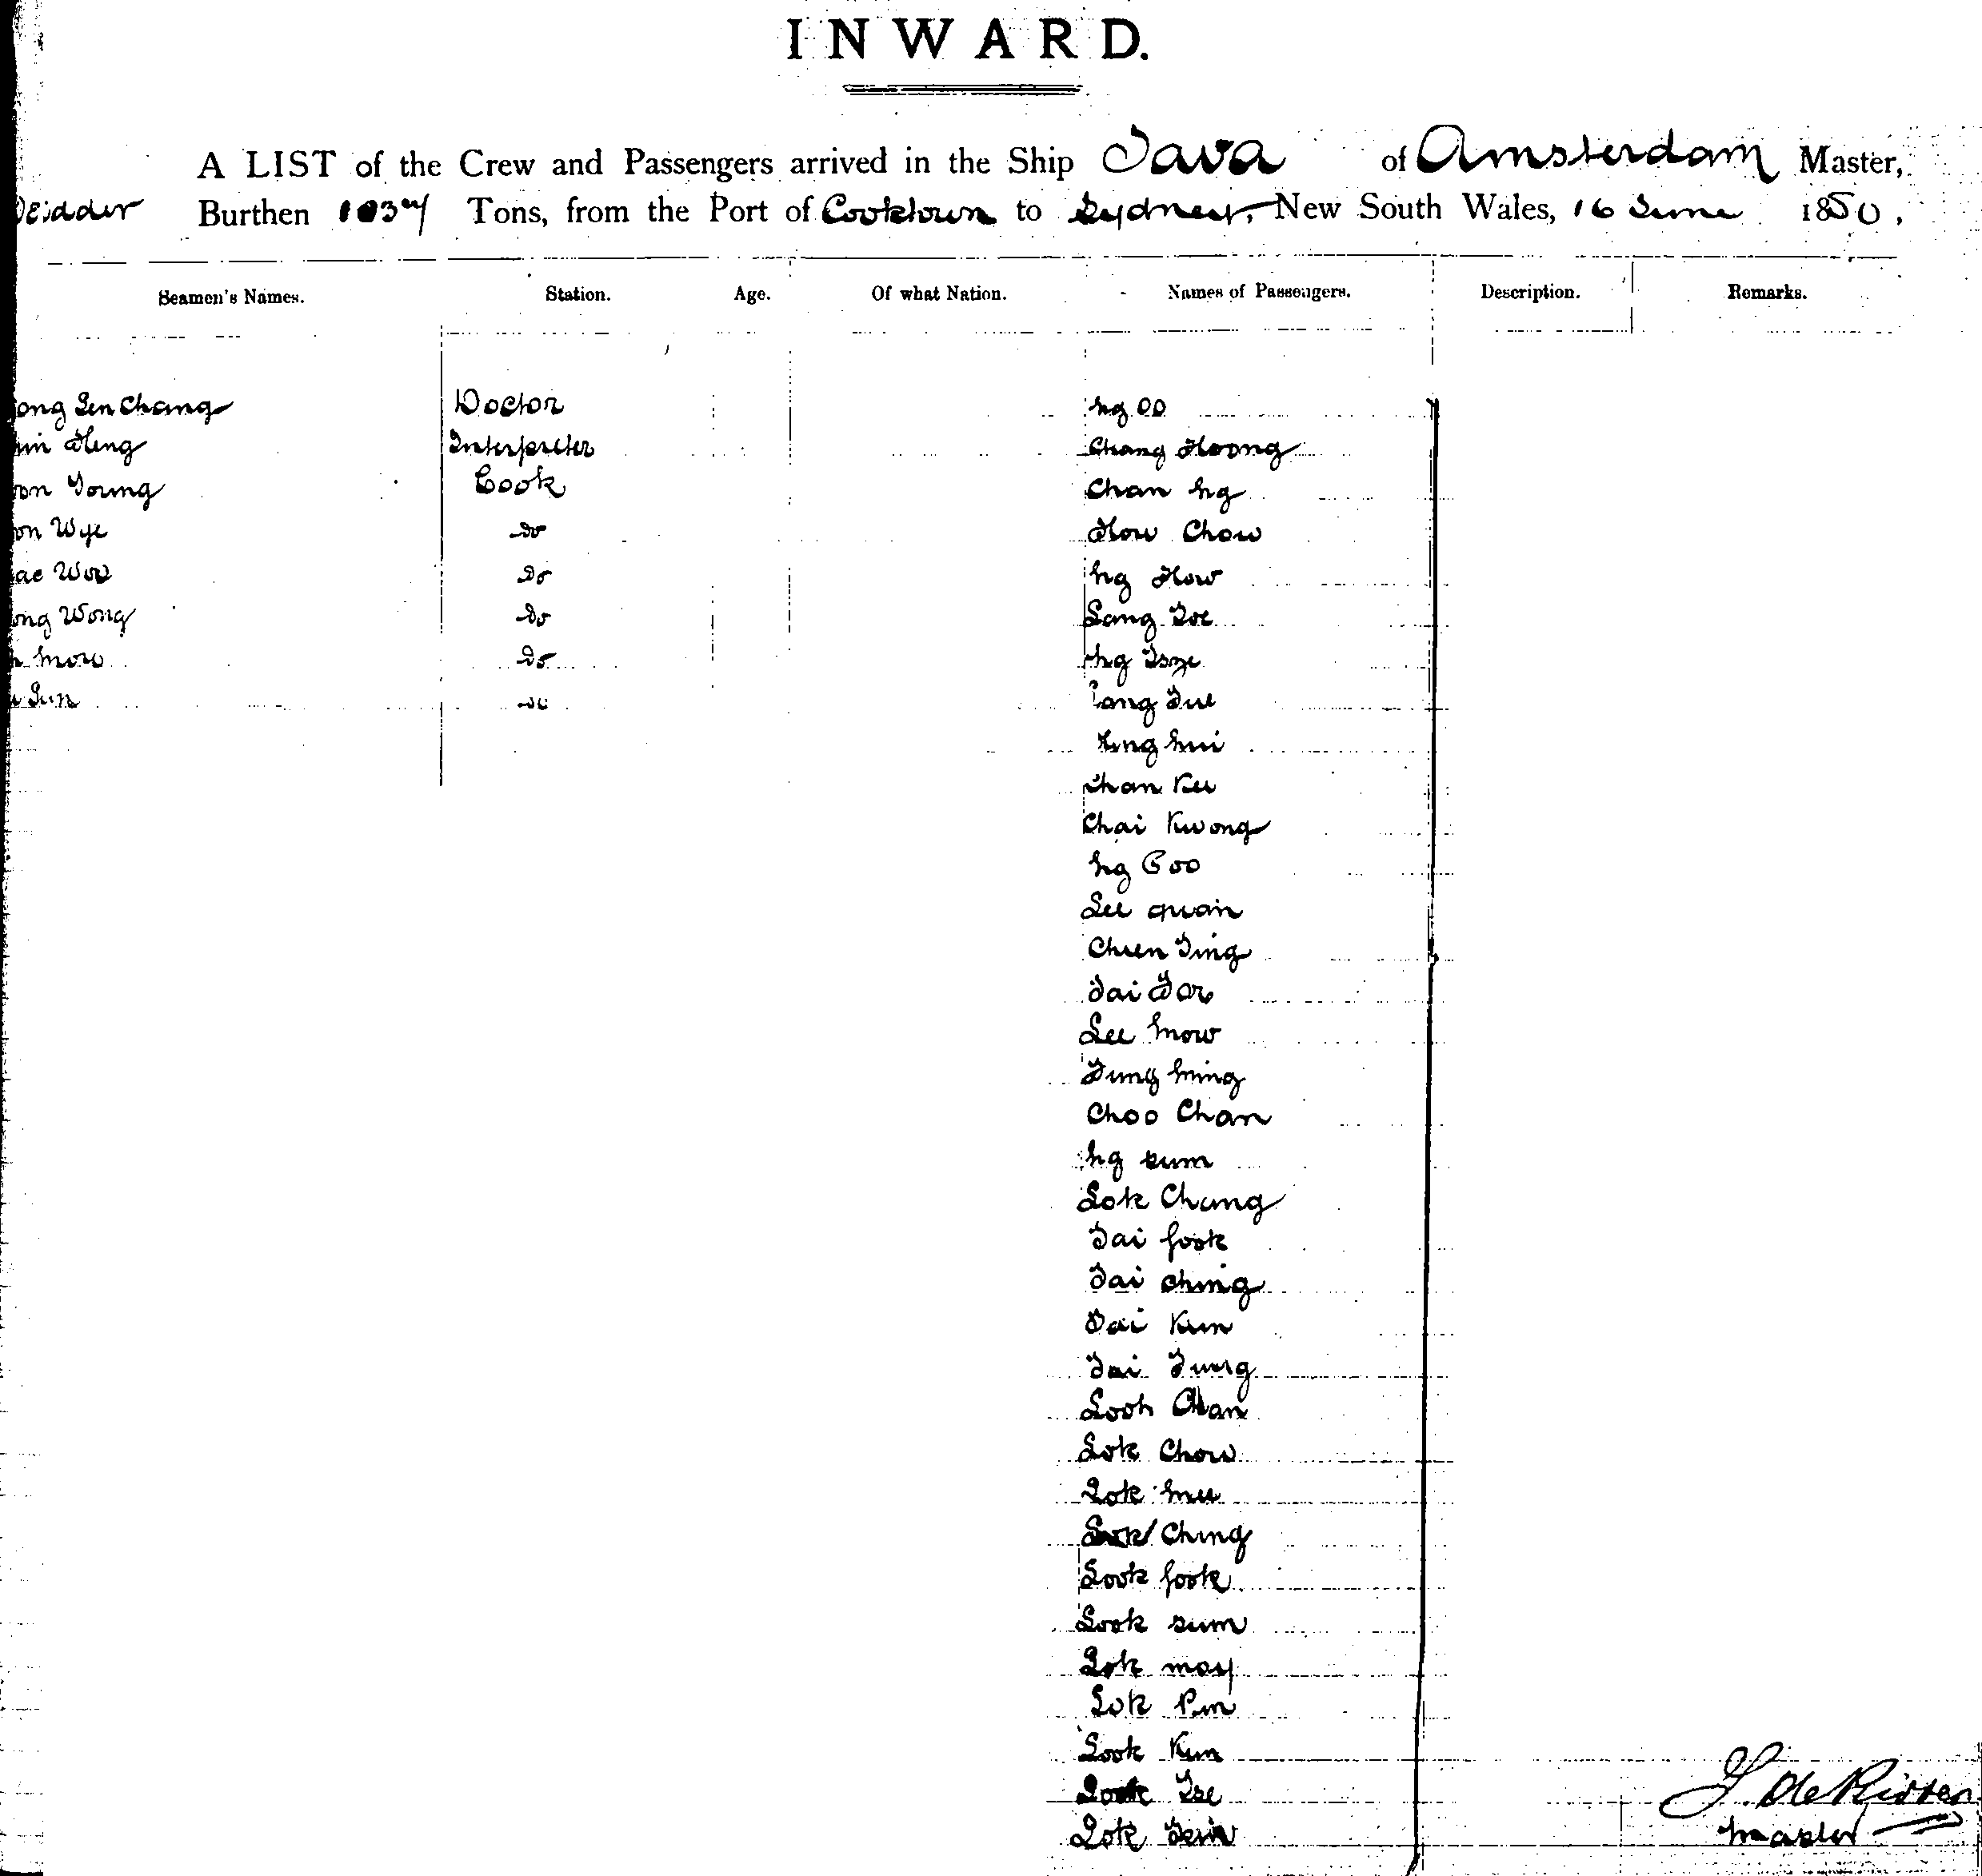 INWARD.
A LIST of the Crew and Passengers arrived in the Ship Java of Amsterdam Master,
Burthen 1037 Tons, from the Port of Cooktown to Sydney, New South Wales, 16 June 1880.
Seamen's Names. Station. Age. Of what Nation. Names of Passengers. Description. Remarks.
ong Sen Chang Doctor Ng Oo
Heng Interpreter Chang Hoong
Young Cook Chan Ng
on Wye Do How Chow
Woo Do Ng How
ong Wong Do Sang
Mow Do Ng
Sun Do
Mui
Chan Kee
Chai Kwong
Ng Poo
Lee Quan
Chien Ting
Tai
Lee Mow
Tung Ming
Choo Chan
Ng Sum
Lok Chung
Tai Fook
Tai Ching
Tai Kum
Tai Tung
Look Chan
Lok Chow
Lok Mee
Look Ching
Look Fook
Look Sum
Lok May
Lok
Look Kum
Look Tse
Lok
Master